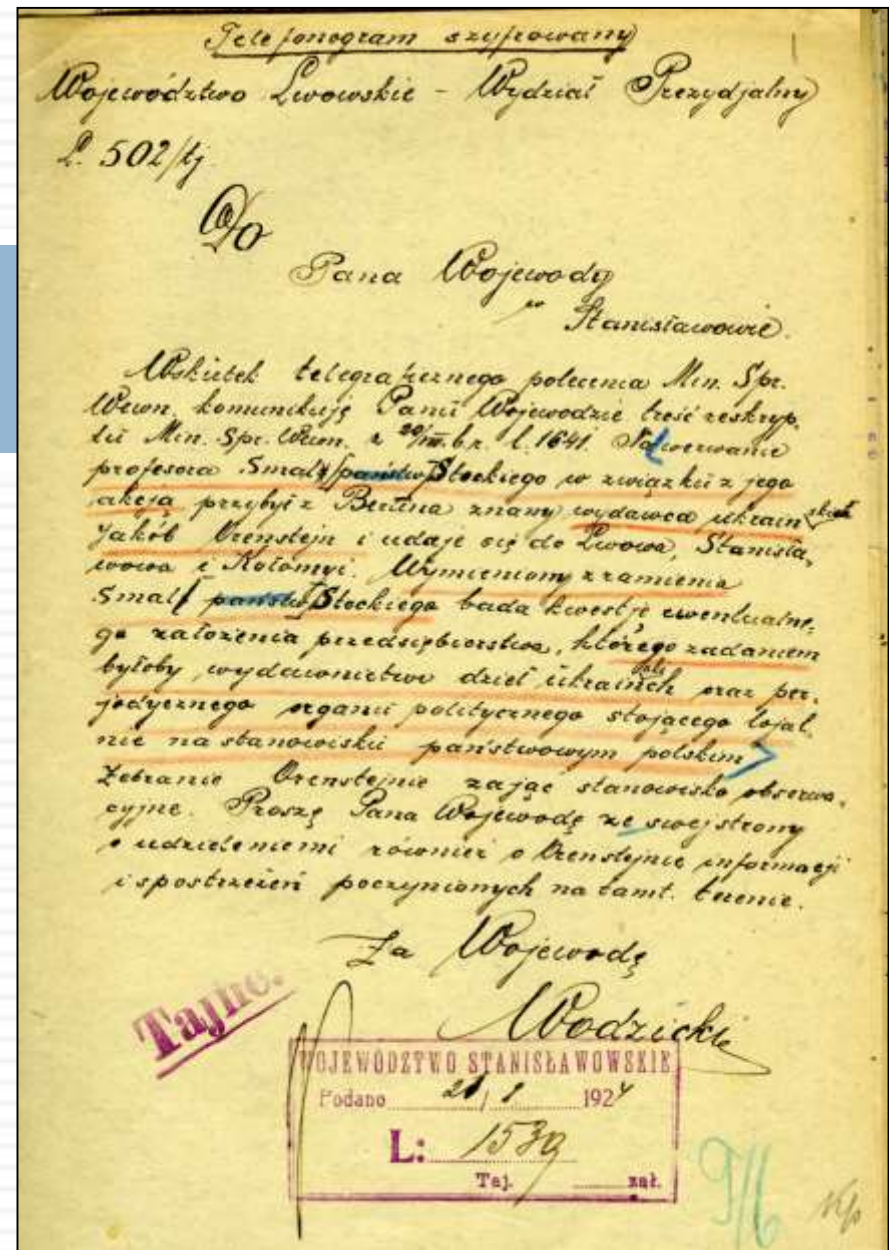 Telefonogram szyfrowany
Województwo Lwowskie - Wydział Prezydjalny
L. 502/tj.
Do
Pana Wojewody
w
Stanisławowie.
Wskutek telegraficznego polecenia Min. Spr.
Wewn. komunikuję Panu Wojewodzie treść reskryp-
tu Min. Spr. Wewn. z 20/VIII. b.r. l. 1641. Na wezwanie
profesora Smal/państw/Stockiego w związku z jego
akcją przybył z Berlina znany wydawca ukraiński
Jakób Orenstejn i udaje się do Lwowa, Stanisła-
wowa i Kołomyi. Wymieniony z ramienia
Smal/państw/Stockiego bada kwestję ewentualne-
go założenia przedsiębiorstwa, którego zadaniem
byłoby wydawnictwo dzieł ukraińch oraz per-
jodycznego organu politycznego stojącego lojal-
nie na stanowisku państwowym polskim
Zebranie Orenstejnie zająć stanowisko obserwa-
cyjne. Proszę Pana Wojewodę ze swej strony
o udzielenie mi również o Orenstejnie informacji
i spostrzeżeń poczynionych na tamt. terenie.
Za Wojewodę
Wodzicki
Tajne.
WOJEWÓDZTWO STANISŁAWOWSKIE
Podano 21/8 1924
L: 1539
Taj. zał.